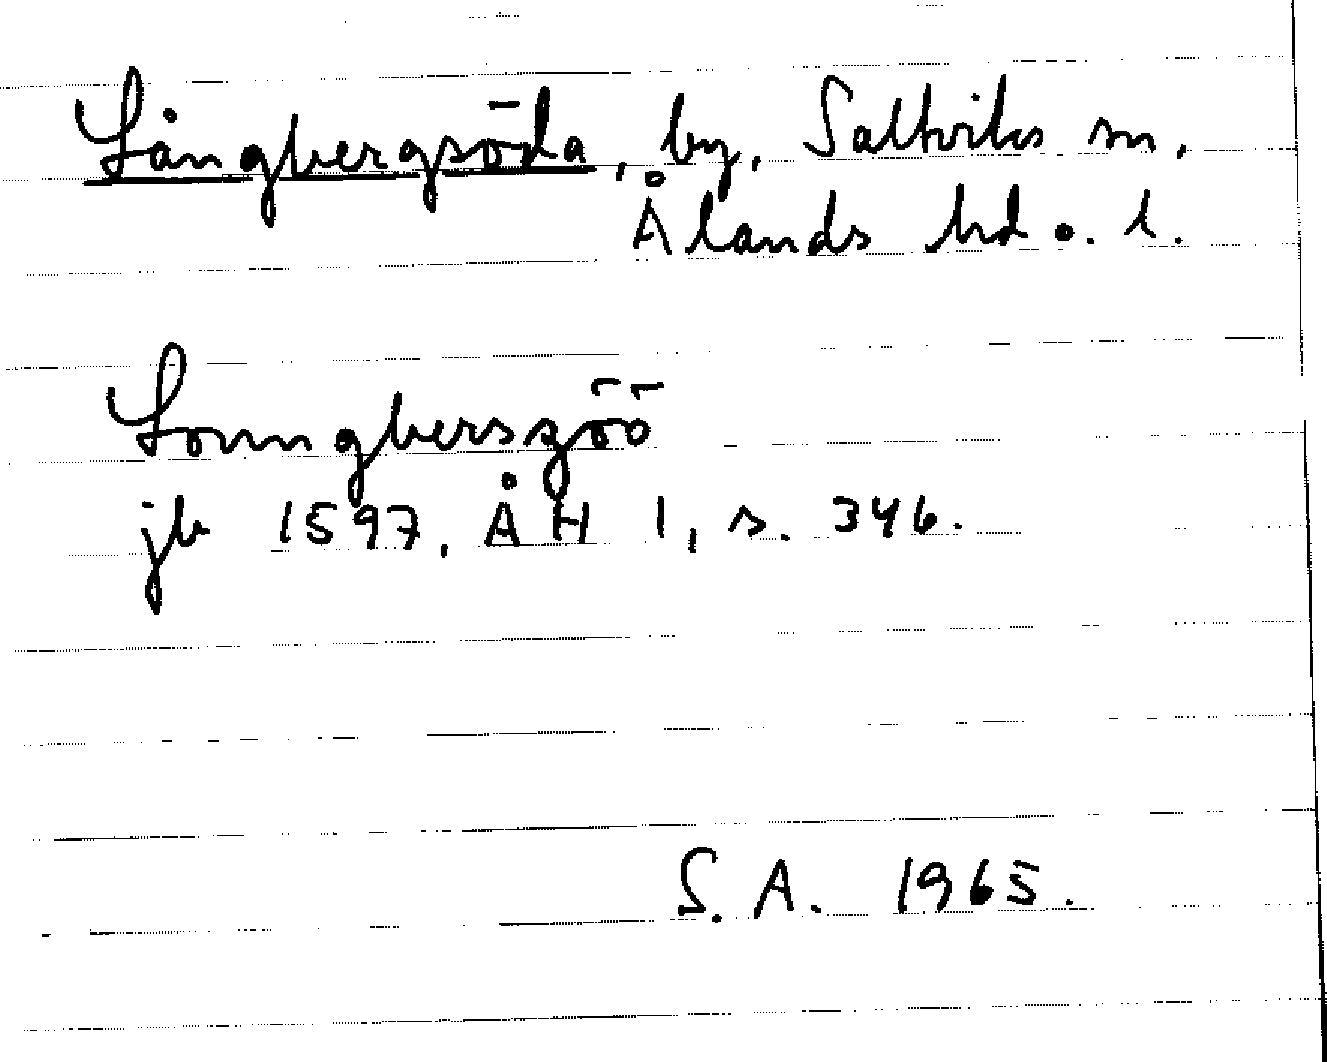 Långbergsöda, by, Saltviks sn,
Ålands hd o. l.
Lonngberszöö
jb 1597, ÅH 1, s. 346.
S. A. 1965.